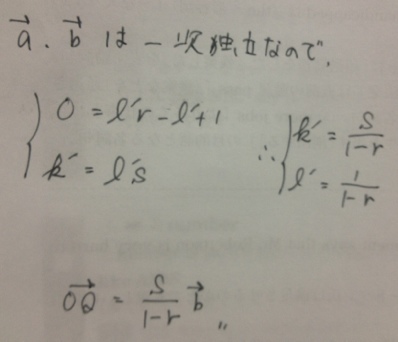 a⃗、b⃗ は一次独立なので、
{ 0 = l'r - l' + 1
k' = l's
∴ { k' = s/(1-r)
l' = 1/(1-r)
OQ⃗ = s/(1-r) b⃗ 〃